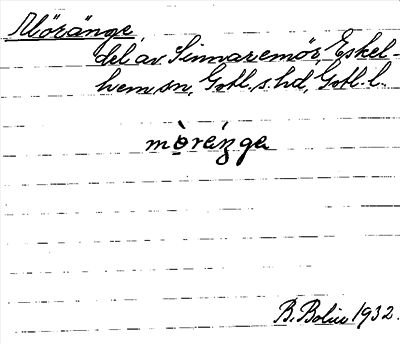 Moränge,
del av Sinnaremör, Eskel-
hem sn, Gotl. s. hd, Gotl. l.
B. Bolin 1932.